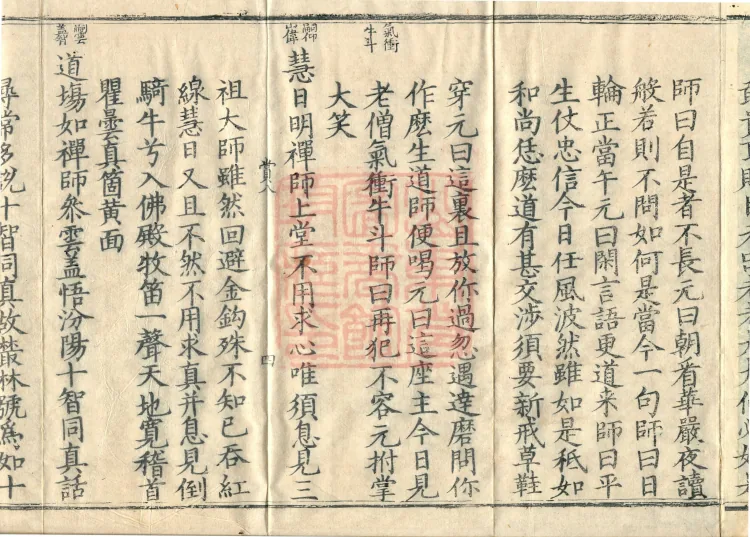 師曰自是者不長元曰朝看華嚴夜讀
般若則不問如何是當今一句師曰日
輪正當午元曰閑言語更道来師曰平
生仗忠信今日任風波然雖如是秖如
和尚恁麽道有甚交涉須要新戒草鞋
穿元曰這裏且放你過忽遇達磨問你
作麽生道師便喝元曰這座主今日見
氣衝
牛斗
老僧氣衝牛斗師曰再犯不容元拊掌
大笑
慧日明禪師上堂不用求心唯須息見三
四
祖大師雖然回避金鈎殊不知已吞紅
線慧日又且不然不用求真并息見倒
騎牛兮入佛殿牧笛一聲天地寬稽首
瞿曇真箇黄面
道塲如禪師叅雲盖悟汾陽十智同真話
尋常多説十智同真故叢林號爲如十